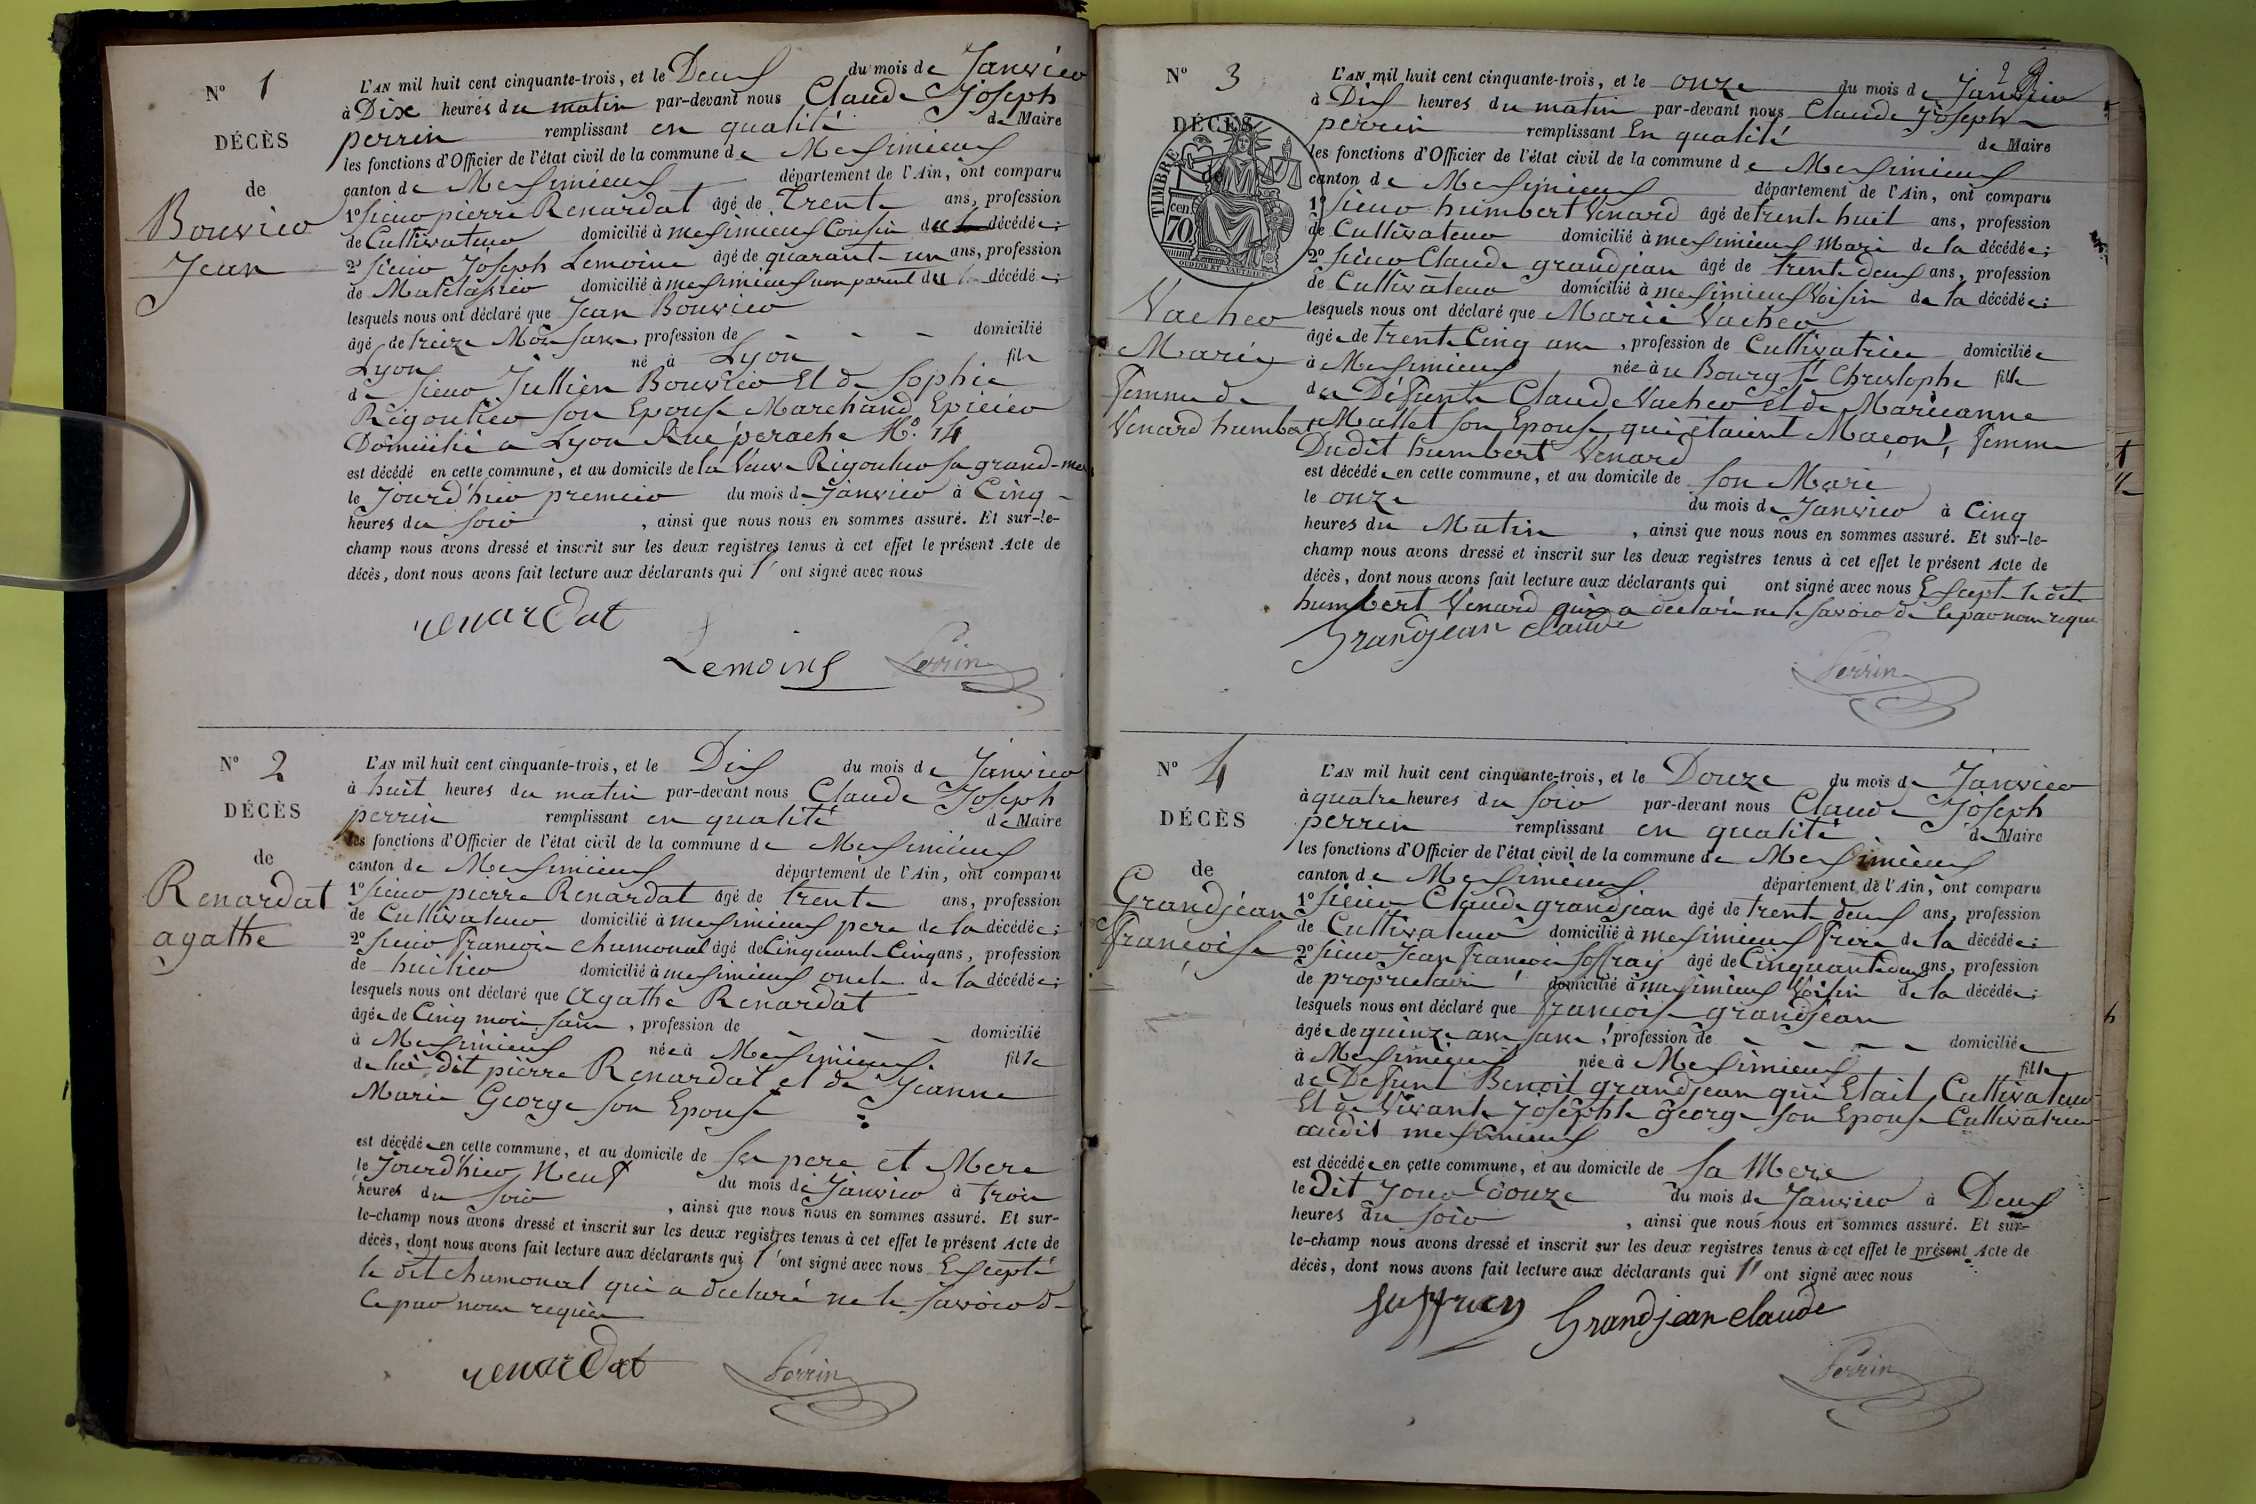 N° 1
DÉCÈS
de
Bouvier
Jean
L'AN mil huit cent cinquante-trois, et le Deux du mois de Janvier
à Dix heures du matin par-devant nous Claude Joseph
perrin remplissant en qualité de Maire
les fonctions d'Officier de l'état civil de la commune de Meximieux
canton de Meximieux département de l'Ain, ont comparu
1° sieur pierre Renardat âgé de Trente ans, profession
de Cultivateur domicilié à meximieux Cousin du décédé;
2° sieur Joseph Lemoine âgé de quarante un ans, profession
de Matelassier domicilié à meximieux non parent du décédé;
lesquels nous ont déclaré que Jean Bouvier
âgé de treize Mois sans profession de - - - domicilié
Lyon né à Lyon fils
de sieur Jullien Bouvier Et de Sophie
Rigoulier son Epouse Marchand Epicier
Domicilié a Lyon Rue perache N° 14
est décédé en cette commune, et au domicile de la Veuve Rigoulier sa grand-mere
le Jourd'hier premier du mois de Janvier à Cinq
heures du soir, ainsi que nous nous en sommes assuré. Et sur-le-
champ nous avons dressé et inscrit sur les deux registres tenus à cet effet le présent Acte de
décès, dont nous avons fait lecture aux déclarants qui l'ont signé avec nous
renardat
Lemoine Perrin
N° 2
DÉCÈS
de
Renardat
agathe
L'AN mil huit cent cinquante-trois, et le Dix du mois de Janvier
à huit heures du matin par-devant nous Claude Joseph
perrin remplissant en qualité de Maire
les fonctions d'Officier de l'état civil de la commune de Meximieux
canton de Meximieux département de l'Ain, ont comparu
1° sieur pierre Renardat âgé de trente ans, profession
de Cultivateur domicilié à meximieux pere de la décédée;
2° sieur francois chumonal âgé de Cinquante Cinq ans, profession
de huilier domicilié à meximieux oncle de la décédée;
lesquels nous ont déclaré que Agathe Renardat
âgée de Cinq mois sans, profession de - - - domicilié
à Meximieux née à Meximieux fille
de lui dit pierre Renardat et de Jeanne
Marie George son Epouse
est décédée en cette commune, et au domicile de ses pere et Mere
le Jourd'hier Neuf du mois de Janvier à trois
heures du soir, ainsi que nous nous en sommes assuré. Et sur-
le-champ nous avons dressé et inscrit sur les deux registres tenus à cet effet le présent Acte de
décès, dont nous avons fait lecture aux déclarants qui l'ont signé avec nous Excepté
le dit chumonal qui a declaré ne le savoir de
ce par nous requis
renardat Perrin
2
N° 3
DÉCÈS
de
TIMBRE
70
cen
OUDINE ET VAUTHIER
Vacher
Marie
femme de
Venard humbert
L'AN mil huit cent cinquante-trois, et le onze du mois de Janvier
à Dix heures du matin par-devant nous Claude Joseph
perrin remplissant En qualité de Maire
les fonctions d'Officier de l'état civil de la commune de Meximieux
canton de Meximieux département de l'Ain, ont comparu
1° sieur humbert Venard âgé de trente huit ans, profession
de Cultivateur domicilié à meximieux mari de la décédée;
2° sieur Claude grandjean âgé de trente deux ans, profession
de Cultivateur domicilié à meximieux Voisin de la décédée;
lesquels nous ont déclaré que Marie Vacher
âgée de trente Cinq ans, profession de Cultivatrice domiciliée
à Meximieux née à u Bourg St Christophe fille
de Défunts Claude Vacher et de Marieanne
Mallet son Epouse qui étaient Maçons, femme
Dudit humbert Venard
est décédée en cette commune, et au domicile de son Mari
le onze du mois de Janvier à Cinq
heures du Matin, ainsi que nous nous en sommes assuré. Et sur-le-
champ nous avons dressé et inscrit sur les deux registres tenus à cet effet le présent Acte de
décès, dont nous avons fait lecture aux déclarants qui ont signé avec nous Excepté le dit
humbert Venard qui a declaré ne le savoir de ce par nous requis
Grandjean claude
Perrin
N° 4
DÉCÈS
de
Grandjean
françoise
L'AN mil huit cent cinquante-trois, et le Douze du mois de Janvier
à quatre heures du soir par-devant nous Claude Joseph
perrin remplissant en qualité de Maire
les fonctions d'Officier de l'état civil de la commune de Meximieux
canton de Meximieux département de l'Ain, ont comparu
1° sieur Claude grandjean âgé de trente deux ans, profession
de Cultivateur domicilié à meximieux frère de la décédée;
2° sieur Jean francois Joffray âgé de Cinquante deux ans, profession
de propriétaire domicilié à meximieux Voisin de la décédée;
lesquels nous ont déclaré que francoise grandjean
âgée de quinze ans sans, profession de - - - - domiciliée
à Meximieux née à Meximieux fille
de Defunt Benoit grandjean qui Etait Cultivateur
Et de Vivante Josephte George son Epouse Cultivatrice
audit meximieux
est décédée en cette commune, et au domicile de sa Mere
le Dit Jour douze du mois de Janvier à Deux
heures du soir, ainsi que nous nous en sommes assuré. Et sur-
le-champ nous avons dressé et inscrit sur les deux registres tenus à cet effet le présent Acte de
décès, dont nous avons fait lecture aux déclarants qui l'ont signé avec nous
Joffray Grandjean claude
Perrin